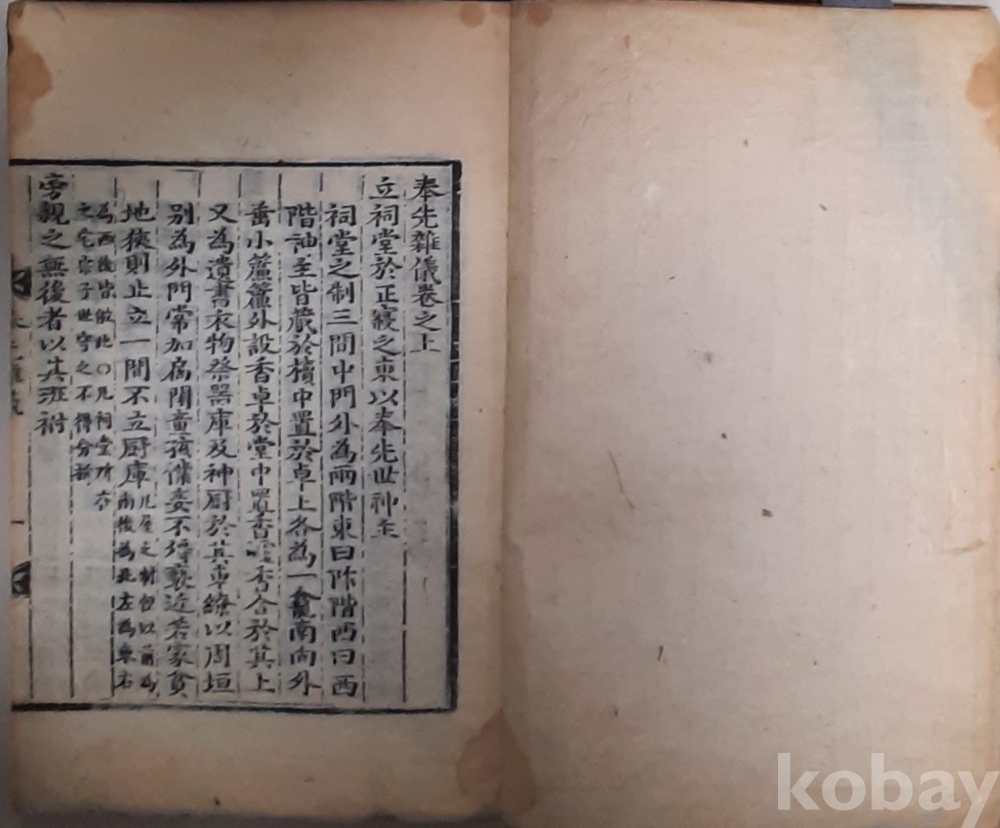 奉先雜儀卷之上
立祠堂於正寢之東以奉先世神主
祠堂之制三間中門外為兩階東曰阼階西曰西
階神主皆藏於櫝中置於卓上各為一龕南向外
垂小簾簾外設香卓於堂中置香爐香合於其上
又為遺書衣物祭器庫及神厨於其東繚以周垣
別為外門常加扃閉童孩僕妾不得褻近若家貧
地狹則止立一間不立厨庫凡屋之制但以前為
南後為北左為東右
為西後皆倣此○凡祠堂所在
之宅宗子世守之不得分析
旁親之無後者以其班祔
kobay